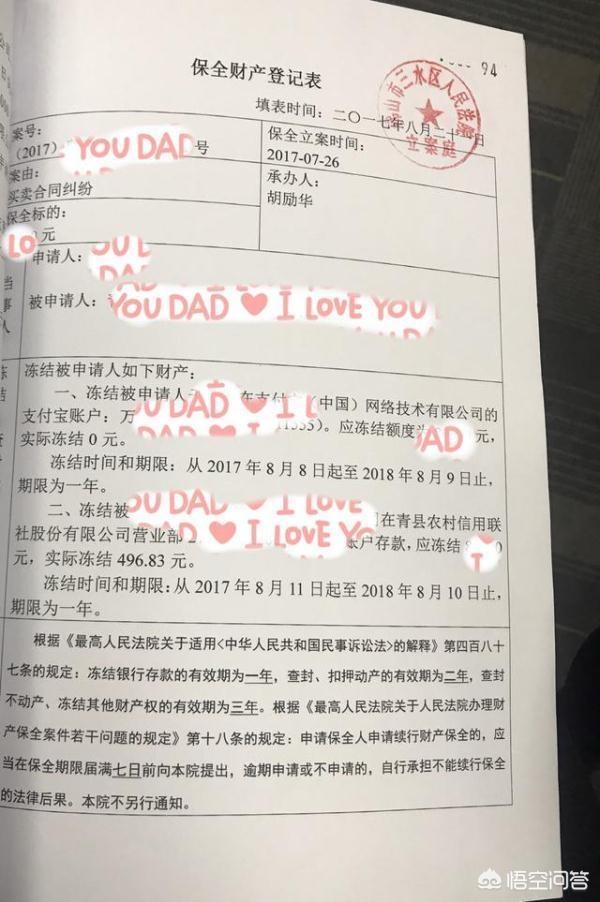 94
保全财产登记表
填表时间：二〇一七年八月二十一日
山市三水区人民法院
立案庭
案号：
（2017） YOU DAD 号
保全立案时间：
2017-07-26
案由：
买卖合同纠纷
承办人：
胡励华
保全标的：
LO 元
申请人：
OU D
DAD
被申请人：
YOU DAD ❤ I LOVE YOU
冻结被申请人如下财产：
一、冻结被申请人 在支付 （中国）网络技术有限公司的
支付宝账户：万 OU DAD ❤ I L 11535）。应冻结额度 DAD 元，
实际冻结 0 元。
冻结时间和期限：从 2017 年 8 月 8 日起至 2018 年 8 月 9 日止，
期限为一年。
二、冻结被 OU DAD ❤ I LOVE 在青县农村信用联
社股份有限公司营业部 2 DAD ❤ I LOVE YO 账户存款，应冻结 8 I 0
元，实际冻结 496.83 元。
冻结时间和期限：从 2017 年 8 月 11 日起至 2018 年 8 月 10 日止，
期限为一年。
根据《最高人民法院关于适用<中华人民共和国民事诉讼法>的解释》第四百八十
七条的规定：冻结银行存款的有效期为一年，查封、扣押动产的有效期为二年，查封
不动产、冻结其他财产权的有效期为三年。根据《最高人民法院关于人民法院办理财
产保全案件若干问题的规定》第十八条的规定：申请保全人申请续行财产保全的，应
当在保全期限届满七日前向本院提出，逾期申请或不申请的，自行承担不能续行保全
的法律后果。本院不另行通知。
悟空问答